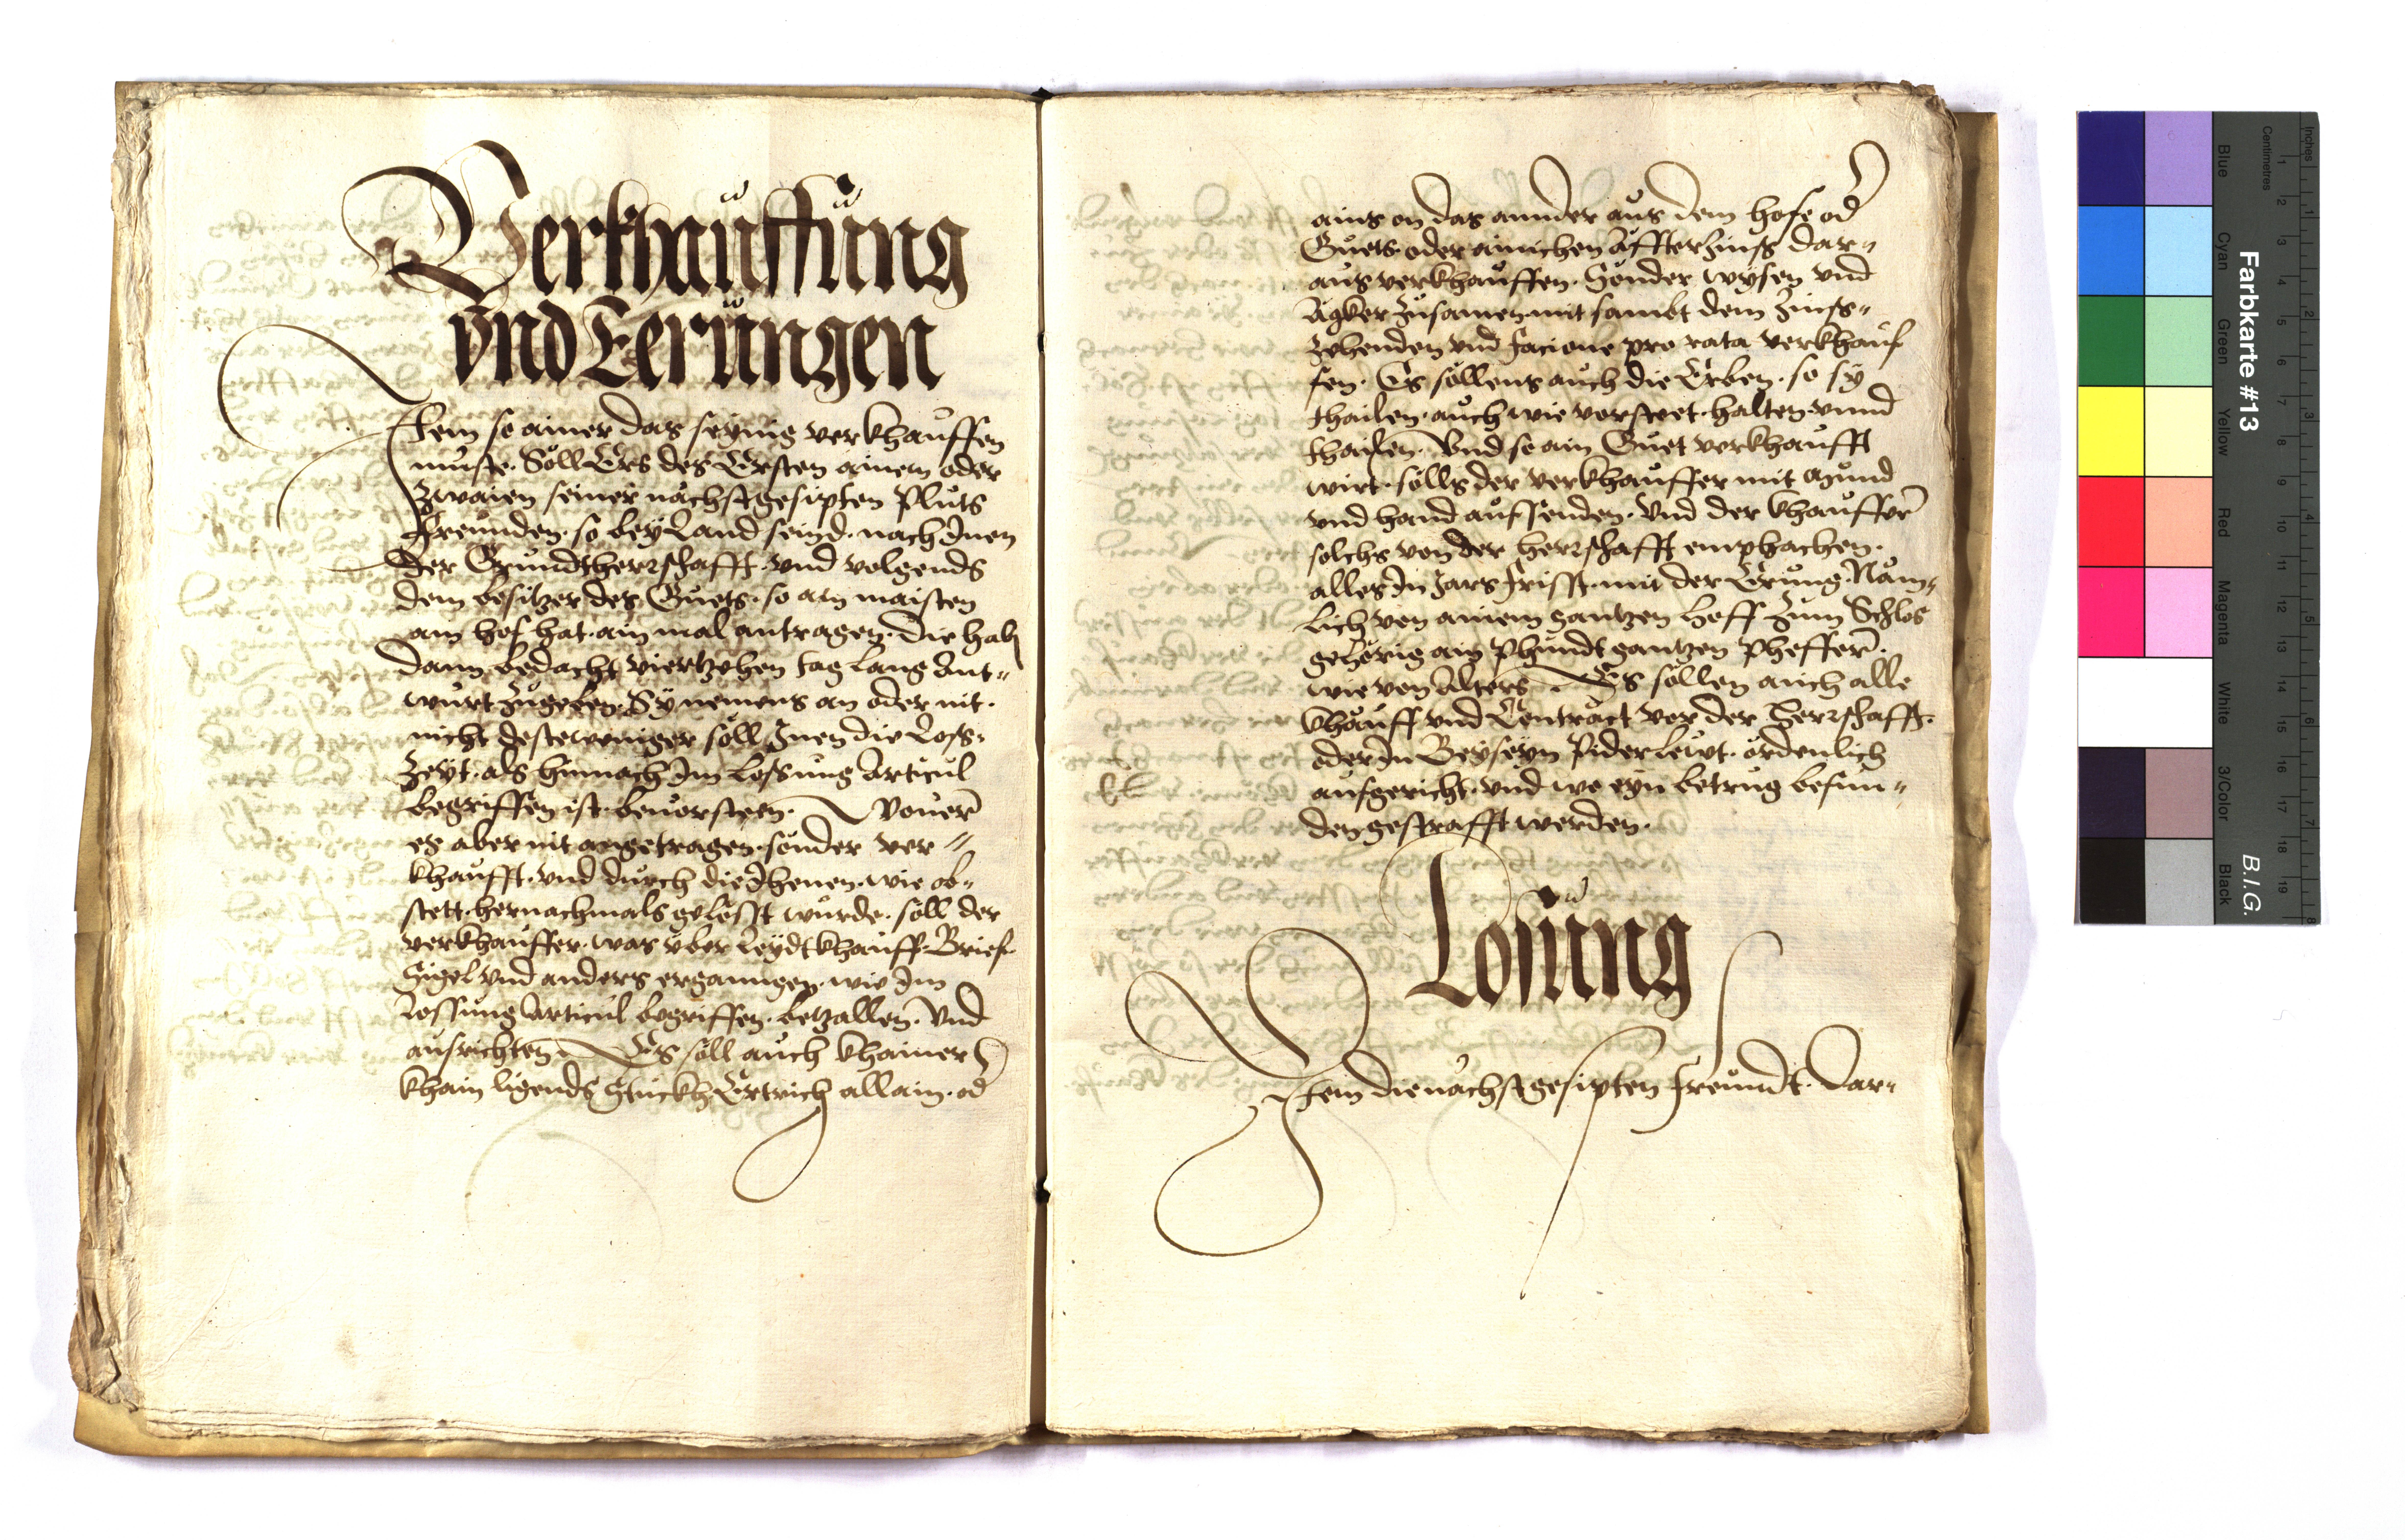 Verkhauffung
vnd Eerungen
Item so ainer das seynig verkhauffen
muste. Soll Ers des Ersten ainem oder
Zwaien seiner nächstgesipten Pluts
freunden. so bey Land seind. nach Inen
der Grundtherrschafft. vnd volgends
dem besitzer des Guets. so am maisten
am hof hat. ain mal antragen. Die hab
dann bedacht viertzehen tag lang Ant„
wurt zugeben. Sy nemens an oder nit.
nicht destweniger soll Inen die Loss„
Zeyt. als hirnach Im Lossung Articul
begriffen ist. beuorsteen. Wouer
es aber nit angetragen. sonder ver„
khaufft. vnd durch die Ihenen. wie ob„
stett. hernachmals gelösst wurde. soll der
verkhauffer. was vber Leydtkhauff. Brief
Sigel vnd anders erganngen. wie Im
Lossung Articul begriffen. betzallen. Vnd
ausrichten. Es soll auch khainer
khain ligends Stuckh Ertrich allain. od
ains on das annder aus dem hofe od
Guets. oder ainichen Affterzinss dar„
aus verkhauffen. Sonder wysen vnd
Ägker zusamen. mit sambt dem Zinss„
zehenden vnd pro rata verkhauf
fen. Es sollens auch die Erben. so sy
thailen. auch wie vorsteet. halten. vnnd
thailen. Vnd so ain Guet verkhaufft
wirt. solls der verkhauffer mit Mund
vnd hand aufsenden. Vnd der khauffer
solchs von der herrschafft emphachen.
alles In Jars frisst. mit der Erung. Näm„
lich von ainem gantzen Hoff zum Schlos
gehörig ain Phundt gantzen Pheffer.
wie von Alters. Es sollen auch alle
khauff vnd Contract vor der Herrschafft.
oder In Beyseyn Piderleut. ordenlich
aufgericht. vnd wo eyn betrug befun„
den gestrafft werden.
Losung
Item die nächstgesipten freundt. Dar„
Farbkarte #13
B.I.G.
Blue
Cyan
Green
Yellow
Red
Magenta
White
3/Color
Black
Centimetres
Inches